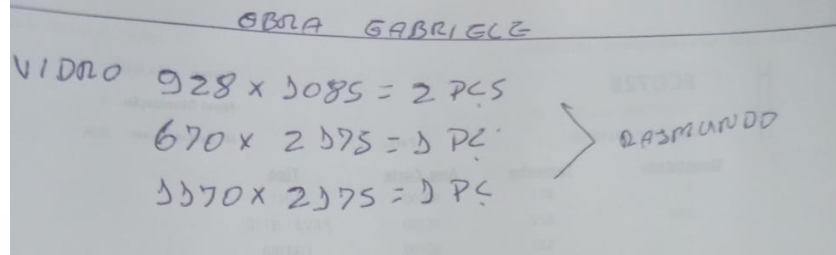 OBRA GABRIELE
VIDRO 928 x 1085 = 2 PÇS
670 x 2175 = 1 PÇ
1170 x 2175 = 1 PÇ
RAIMUNDO